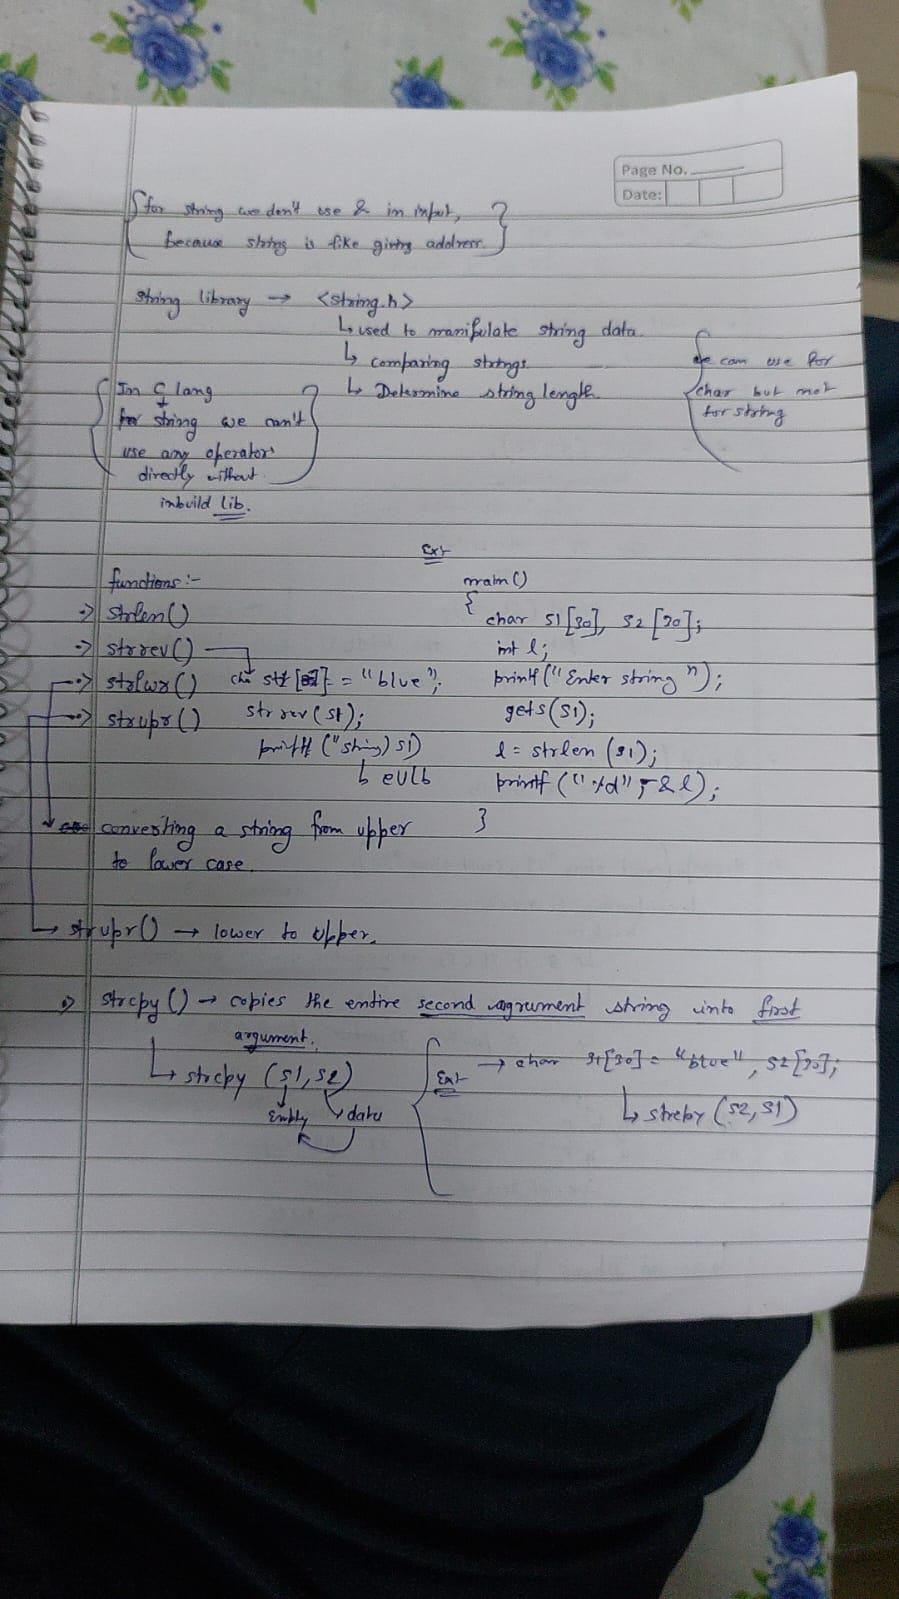 Page No.
Date:
for string we don't use & in input,
because string is like giving address.
string library → <string.h>
↳ used to manipulate string data.
↳ comparing strings.
↳ Determine string length.
we can use for
char but not
for string
In C lang
for string we can't
use any operator
directly without
inbuild lib.
Ex:-
functions :-
main()
{
→ strlen()
char s1[30], s2[30];
→ strrev()
int l;
→ strlwr()
= "blue";
printf("Enter string");
→ strupr()
strrev(s1);
gets(s1);
printf("string) s1)
l = strlen(s1);
↳ eulb
printf("%d", &l);
converting a string from upper
}
to lower case.
↳ strupr() → lower to upper.
→ strcpy() → copies the entire second argrument string into first
argument.
↳ strcpy (s1, s2)
Empty
data
Ex:-
→ char s1[30] = "blue", s2[30];
↳ strcpy (s2, s1)